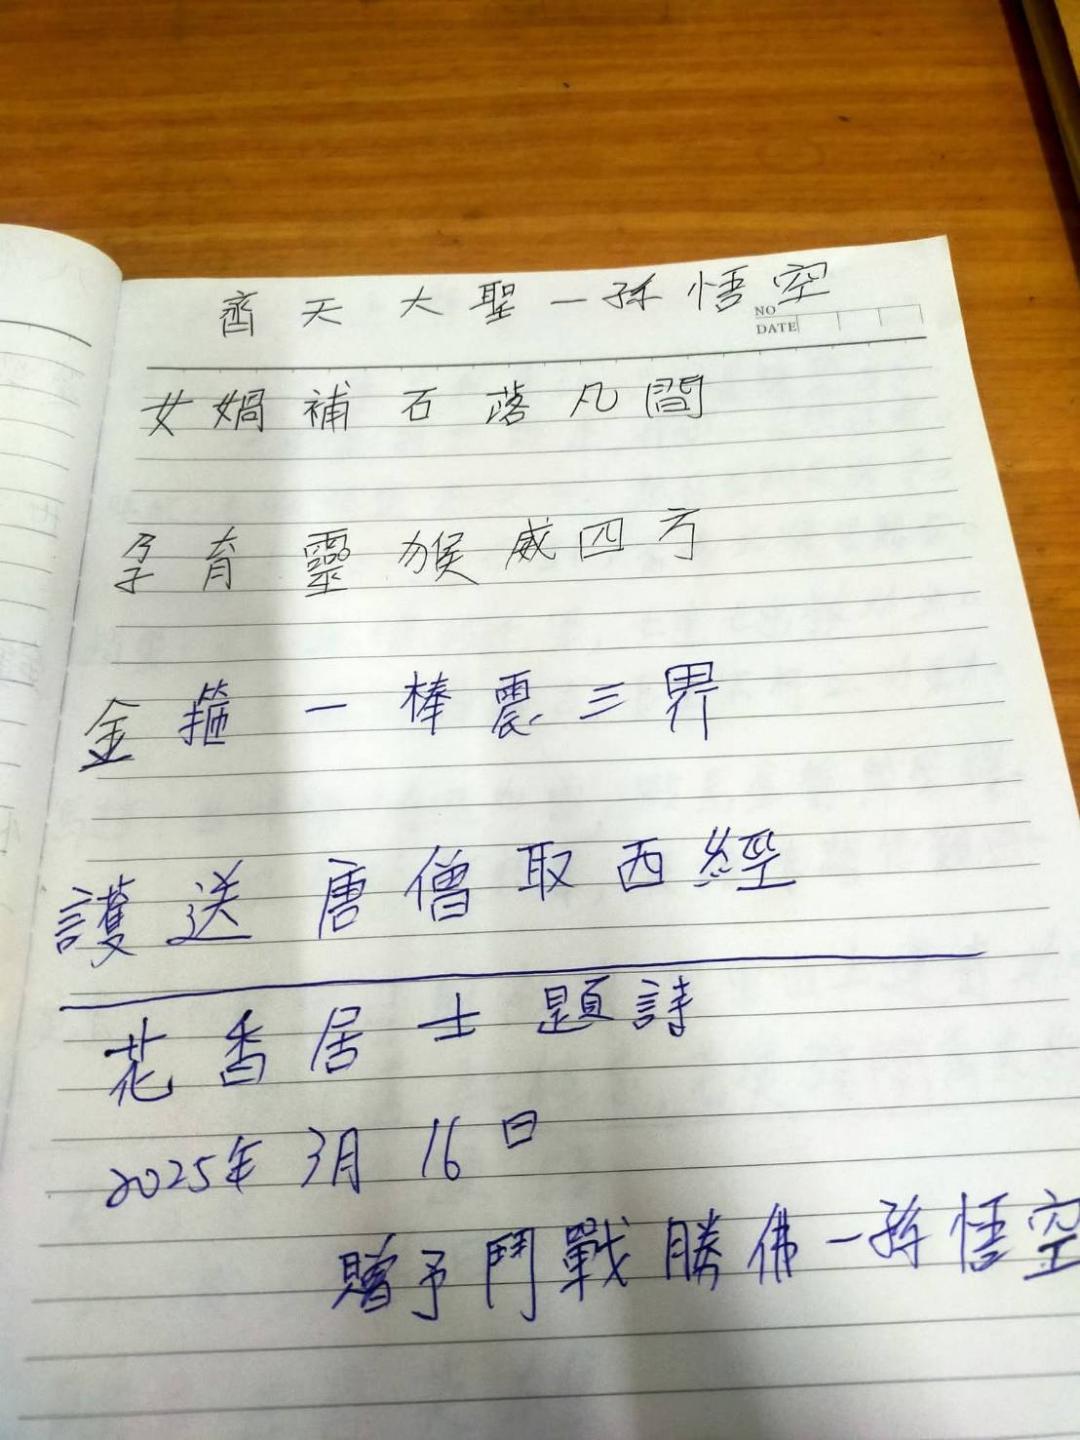 齊天大聖一孫悟空
NO
DATE
女媧補石落凡間
孕育靈猴威四方
金箍一棒震三界
護送唐僧取西經
花香居士題詩
2025年3月16日
贈予鬥戰勝佛一孫悟空